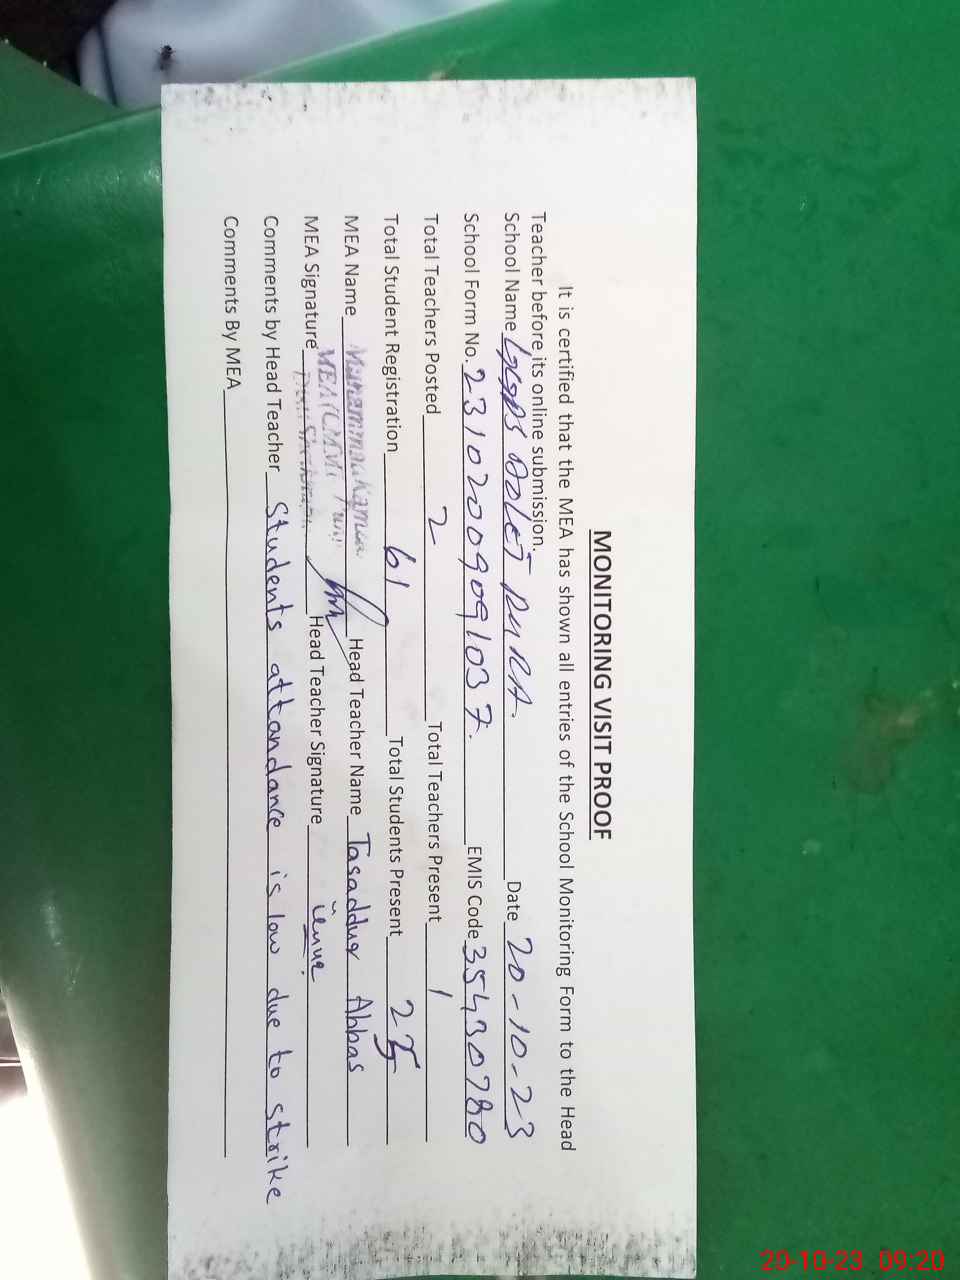 MONITORING VISIT PROOF
It is certified that the MEA has shown all entries of the School Monitoring Form to the Head
Teacher before its online submission.
School Name GGPS DOLET PURA. Date 20-10-23
School Form No. 23102009091037. EMIS Code 35430780
Total Teachers Posted 2 Total Teachers Present 1
Total Student Registration 61 Total Students Present 25
MEA Name Muhammad Kamran Head Teacher Name Tasaddur Abbas
MEA Signature MEA(CMMF Head Teacher Signature
Comments by Head Teacher Students attandance is low due to strike
Comments By MEA
20-10-23 09:20